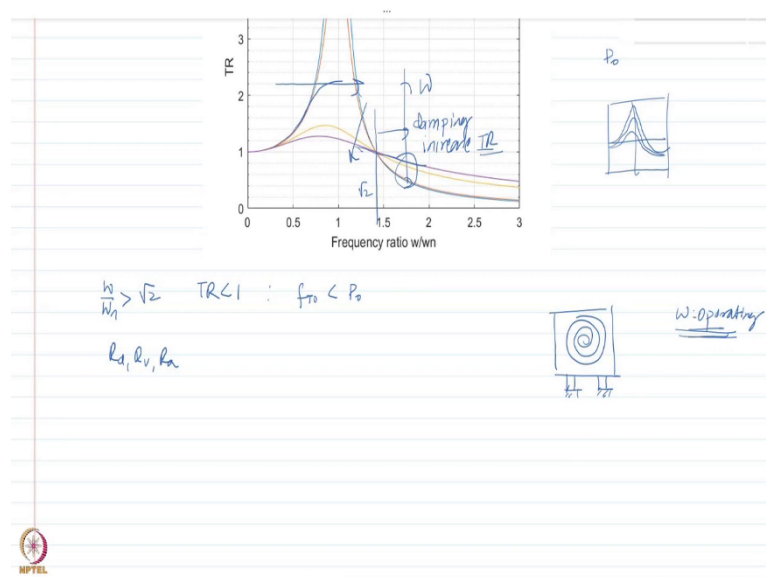 3
TR
2
1
0
0 0.5 1 1.5 2 2.5 3
Frequency ratio w/wn
W
damping
increase TR
√2
P₀
W/Wn > √2 TR<1 : fT0 < P₀
Rd, Rv, Ra
W: Operating
NPTEL